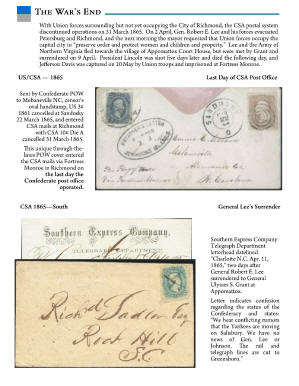 THE WAR'S END
With Union forces surrounding but not yet occupying the City of Richmond, the CSA postal system
discontinued operations on 31 March 1865. On 2 April, Gen. Robert E. Lee and his forces evacuated
Petersburg and Richmond, and the next morning the mayor requested that Union forces occupy the
capital city to "preserve order and protect women and children and property". Lee and the Army of
Northern Virginia fled towards the village of Appomattox Court House, but were met by Grant and
surrendered on 9 April. President Lincoln was shot five days later and died the following day, and
Jefferson Davis was captured on 10 May by Union troops and imprisoned at Fortress Monroe.
US/CSA — 1865
Last Day of CSA Post Office
Sent by Confederate POW
to Mebaneville NC, censor's
oval handstamp, US 3¢
1861 cancelled at Sandusky
22 March 1865, and entered
CSA mails at Richmond
with CSA 10¢ Die A
cancelled 31 March 1865.
This unique through-the-
lines POW cover entered
the CSA mails via Fortress
Monroe to Richmond on
the last day the
Confederate post office
operated.
CSA 1865—South
General Lee's Surrender
Southern Express Company,
TELEGRAPH DEPARTMENT.
Richd Sadler Esq
Rock Hill
S.C.
Southern Express Company
Telegraph Department
letterhead datelined
"Charlotte N.C. Apr. 11,
1865," two days after
General Robert E. Lee
surrendered to General
Ulysses S. Grant at
Appomattox.
Letter indicates confusion
regarding the status of the
Confederacy and states:
"We hear conflicting rumors
that the Yankees are moving
on Salisbury. We have no
news of Gen. Lee or
Johnson. The rail and
telegraph lines are cut to
Greensboro."